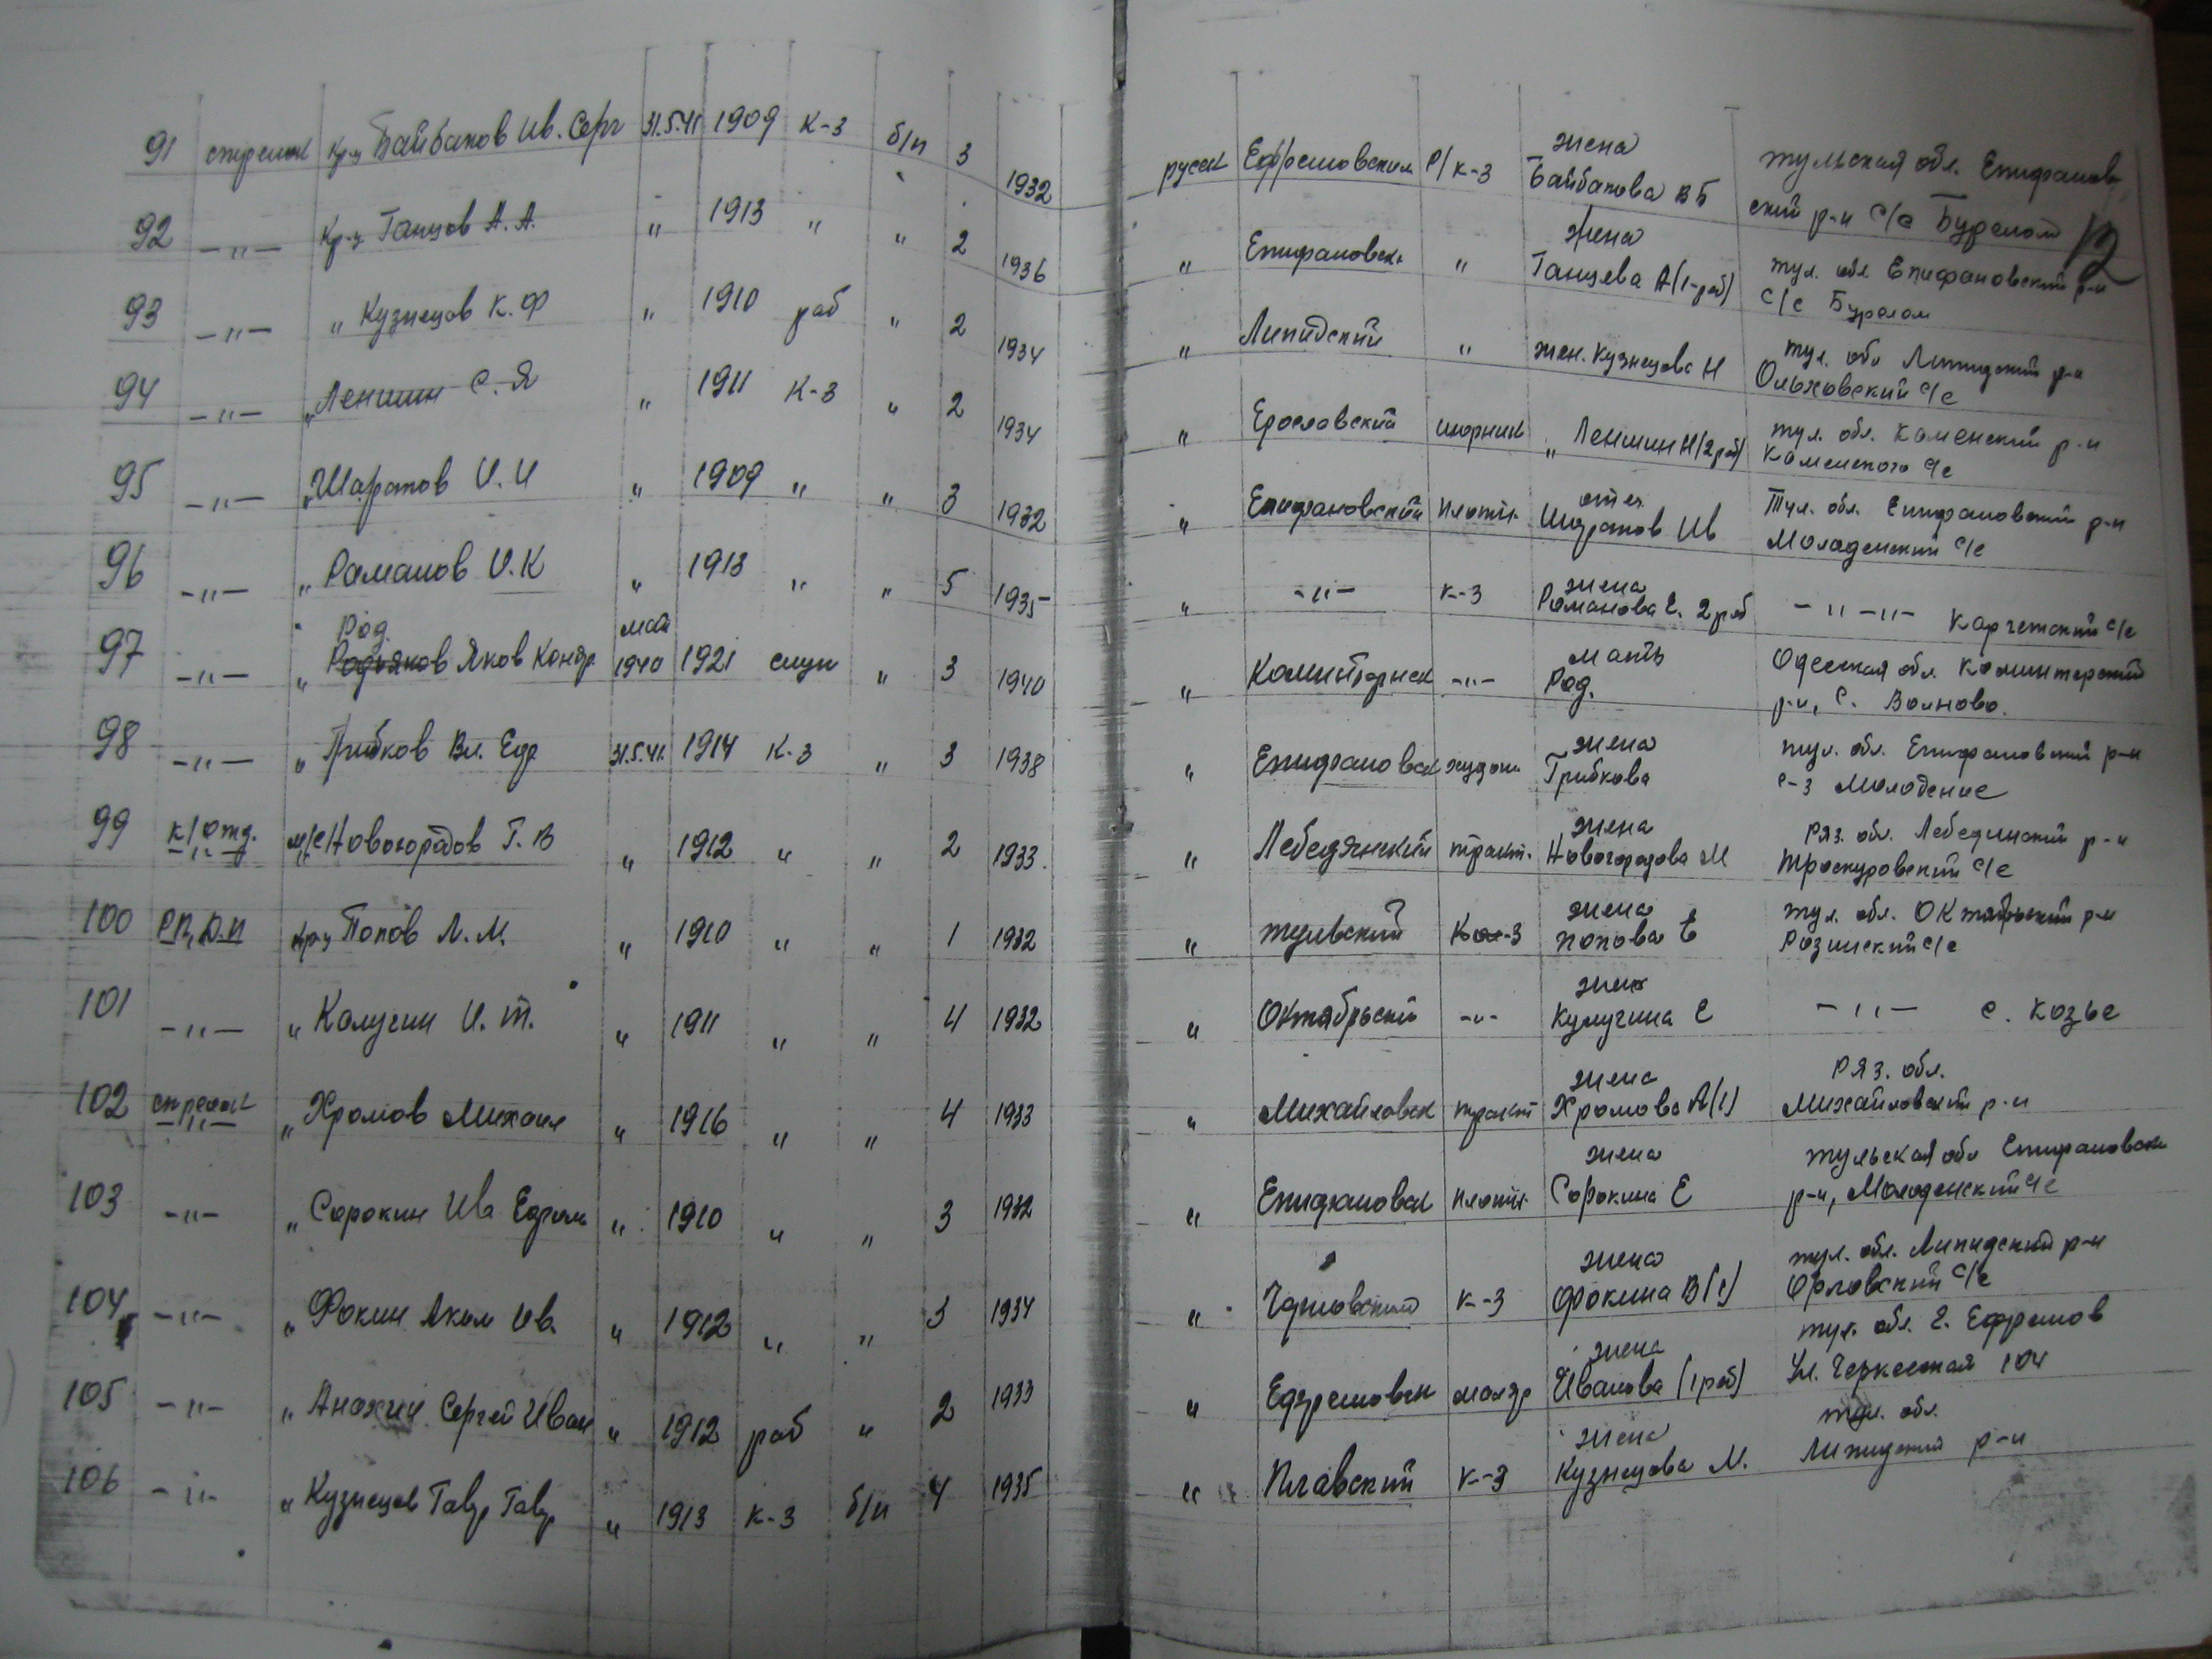 91 стрелок Кр-ц Байбаков Ив. Серг 31.5.41 1909 к-з б/п 3 1932 русск Ефремовским Р/к-з жена Байбакова В Б Тульская обл. Епифанов
ский р-н с/с Бурелом
12
92 -"- Кр-ц Ганцов А. А. " 1913 " " 2 1936 " Епифановск. " жена Ганцева А (1-реб) тул. обл Епифановский р-н
с/с Бурелом
93 -"- " Кузнецов К. Ф " 1910 раб " 2 1934 " Липидский " жен. Кузнецова Н тул. обл Липидский р-н
Ольховский с/с
94 -"- " Леншин С. Я " 1911 к-з " 2 1934 " шорник " Леншин Н (2 реб) тул. обл. Каменский р-н
Каменского с/с
95 -"- " Шаратов И. И " 1909 " " 3 1932 " Епифановский плотн. отец Ив Тул. обл. Епифановский р-н
Молоденский с/с
96 -"- " Раманов И. К " 1913 " " 5 1935 " -"- к-з жена Романова Е. 2 реб -"-"- с/с
97 -"- " Род. Яков Кондр. май 1940 1921 служ " 3 1940 " Коминтернск -"- мать Род. Одесская обл. Коминтернский
р-н, с. Волново.
98 -"- " Грибков Вл. Егр 31.5.41. 1914 к-з " 3 1938 " Епифановск жена Грибкова тул. обл. Епифановский р-н
с-з Молодение
99 к/отд. -"- м/с Новогородов Г. В " 1912 " " 2 1933. " Лебедянский тракт. жена Новогородова М Ряз. обл. Лебединский р-н
Троскуровский с/с
100 кр-ц Попов Л. М. " 1910 " " 1 1932 " тульский Кол-з жена Попова Е тул. обл. Октябрьский р-н
Розинский с/с
101 -"- " Калугин И. Т. " 1911 " " 4 1932 " Октябрьский -"- жена Кулугина Е -"- с. Козье
102 стрелок -"- " Хромов Михаил " 1916 " " 4 1933 " Михайловск тракт жена Хромова А (1) Ряз. обл.
Михайловский р-н
103 -"- " Сорокин Ив Ефрем " 1910 " " 3 1932 " Епифановск плотн. жена Сорокина Е Тульская обл Епифановск
р-н, Молоденский с/с
104 -"- " Фокин Аким Ив. " 1912 " " 3 1934 " к-з жена Фокина В (1) тул. обл. Липидский р-н
Орловский с/с
105 -"- " Анохин Сергей Иван " 1912 раб " 2 1933 " Ефремовск маляр жена Иванова (1 реб) тул. обл. г. Ефремов
Ул. Черкесская 104
106 -"- " Кузнецов Гавр Гавр " 1913 к-з б/п 4 1935 " Плавский к-з жена Кузнецова М. тул. обл.
Липидский р-н